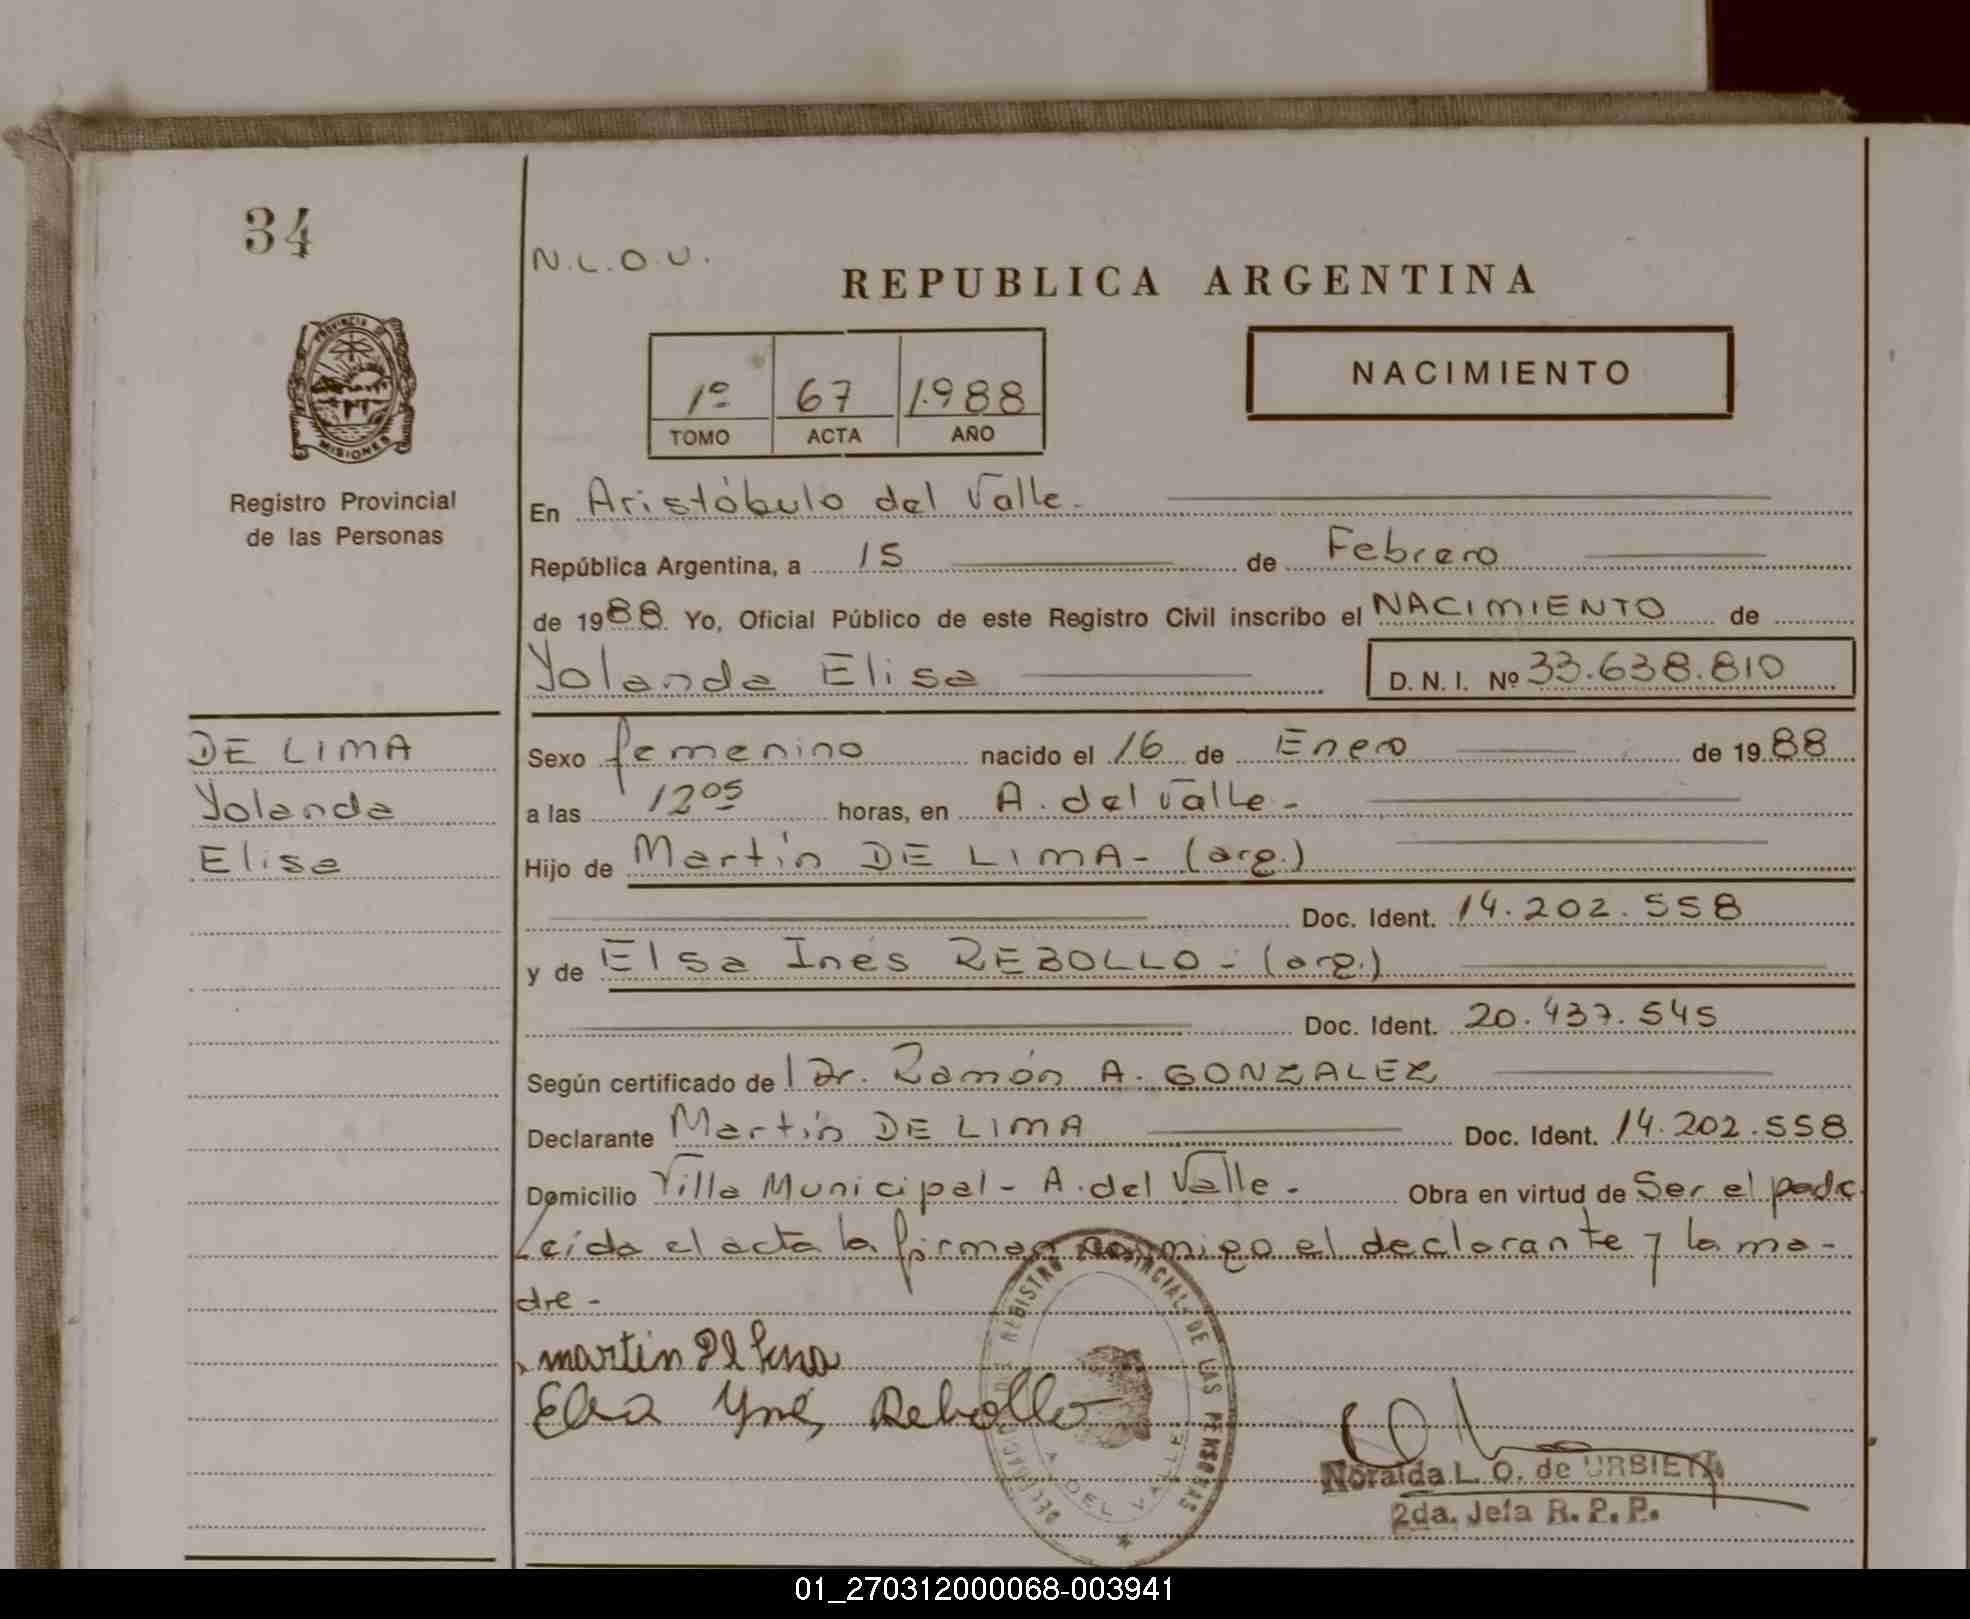 34
N.L.O.U.
REPUBLICA ARGENTINA
PROVINCIA DE
MISIONES
1º 67 1.988
TOMO ACTA AÑO
NACIMIENTO
Registro Provincial
de las Personas
En Aristóbulo del Valle.-
República Argentina, a 15 de Febrero
de 1988. Yo, Oficial Público de este Registro Civil inscribo el NACIMIENTO de
Yolanda Elisa D. N. I. Nº 33.638.810
DE LIMA
Yolanda
Elisa
Sexo femenino nacido el 16 de Enero de 1988
a las 12 05 horas, en A. del Valle.-
Hijo de Martín DE LIMA- (arg.)
Doc. Ident. 14.202.558
y de Elsa Inés REBOLLO - (arg.)
Doc. Ident. 20.437.545
Según certificado del Dr. Ramón A. GONZALEZ
Declarante Martín DE LIMA Doc. Ident. 14.202.558
Domicilio Villa Municipal - A. del Valle. Obra en virtud de Ser el padre
Leída el acta la firman conmigo el declarante y la ma-
dre -
martin De lima
Elsa Ynés Rebollo
DELEGACION DE REGISTRO PROVINCIAL DE LAS PERSONAS
A. DEL VALLE
Noraida L. O. de URBIETA
2da. Jefa R. P. P.
01_270312000068-003941